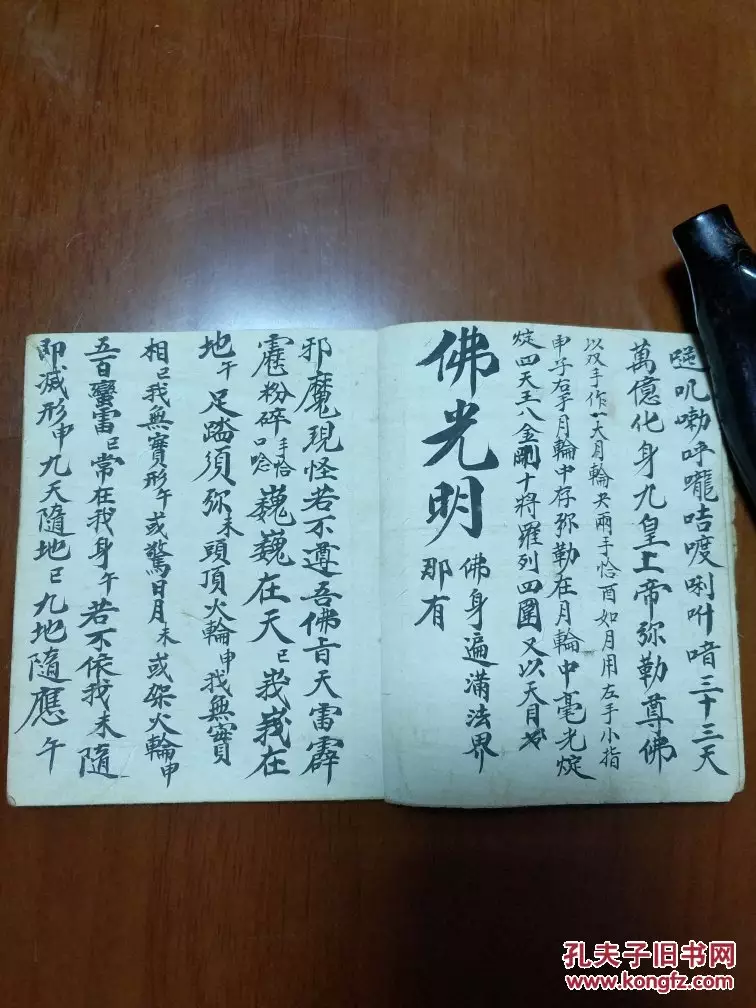 嗹叽嘞呼嚨咭喥唎吽喑三十三天
萬億化身九皇上帝弥勒尊佛
以双手作一大月輪央兩手恰酉如月用左手小指
甲子右手月輪中存弥勒在月輪中毫光燦
燦四天王八金剛十將羅列四圍又以天目
佛光明
佛身遍滿法界
那有
邪魔現怪若不遵吾佛旨天雷霹
靂粉碎手恰口唸巍巍在天巳峩峩在
地午足踏須弥未頭頂火輪申我無實
相巳我無實形午或驚日月未或架火輪申
五百蠻雷巳常在我身午若不依我未隨
即滅形申九天隨地巳九地隨應午
孔夫子旧书网
www.kongfz.com